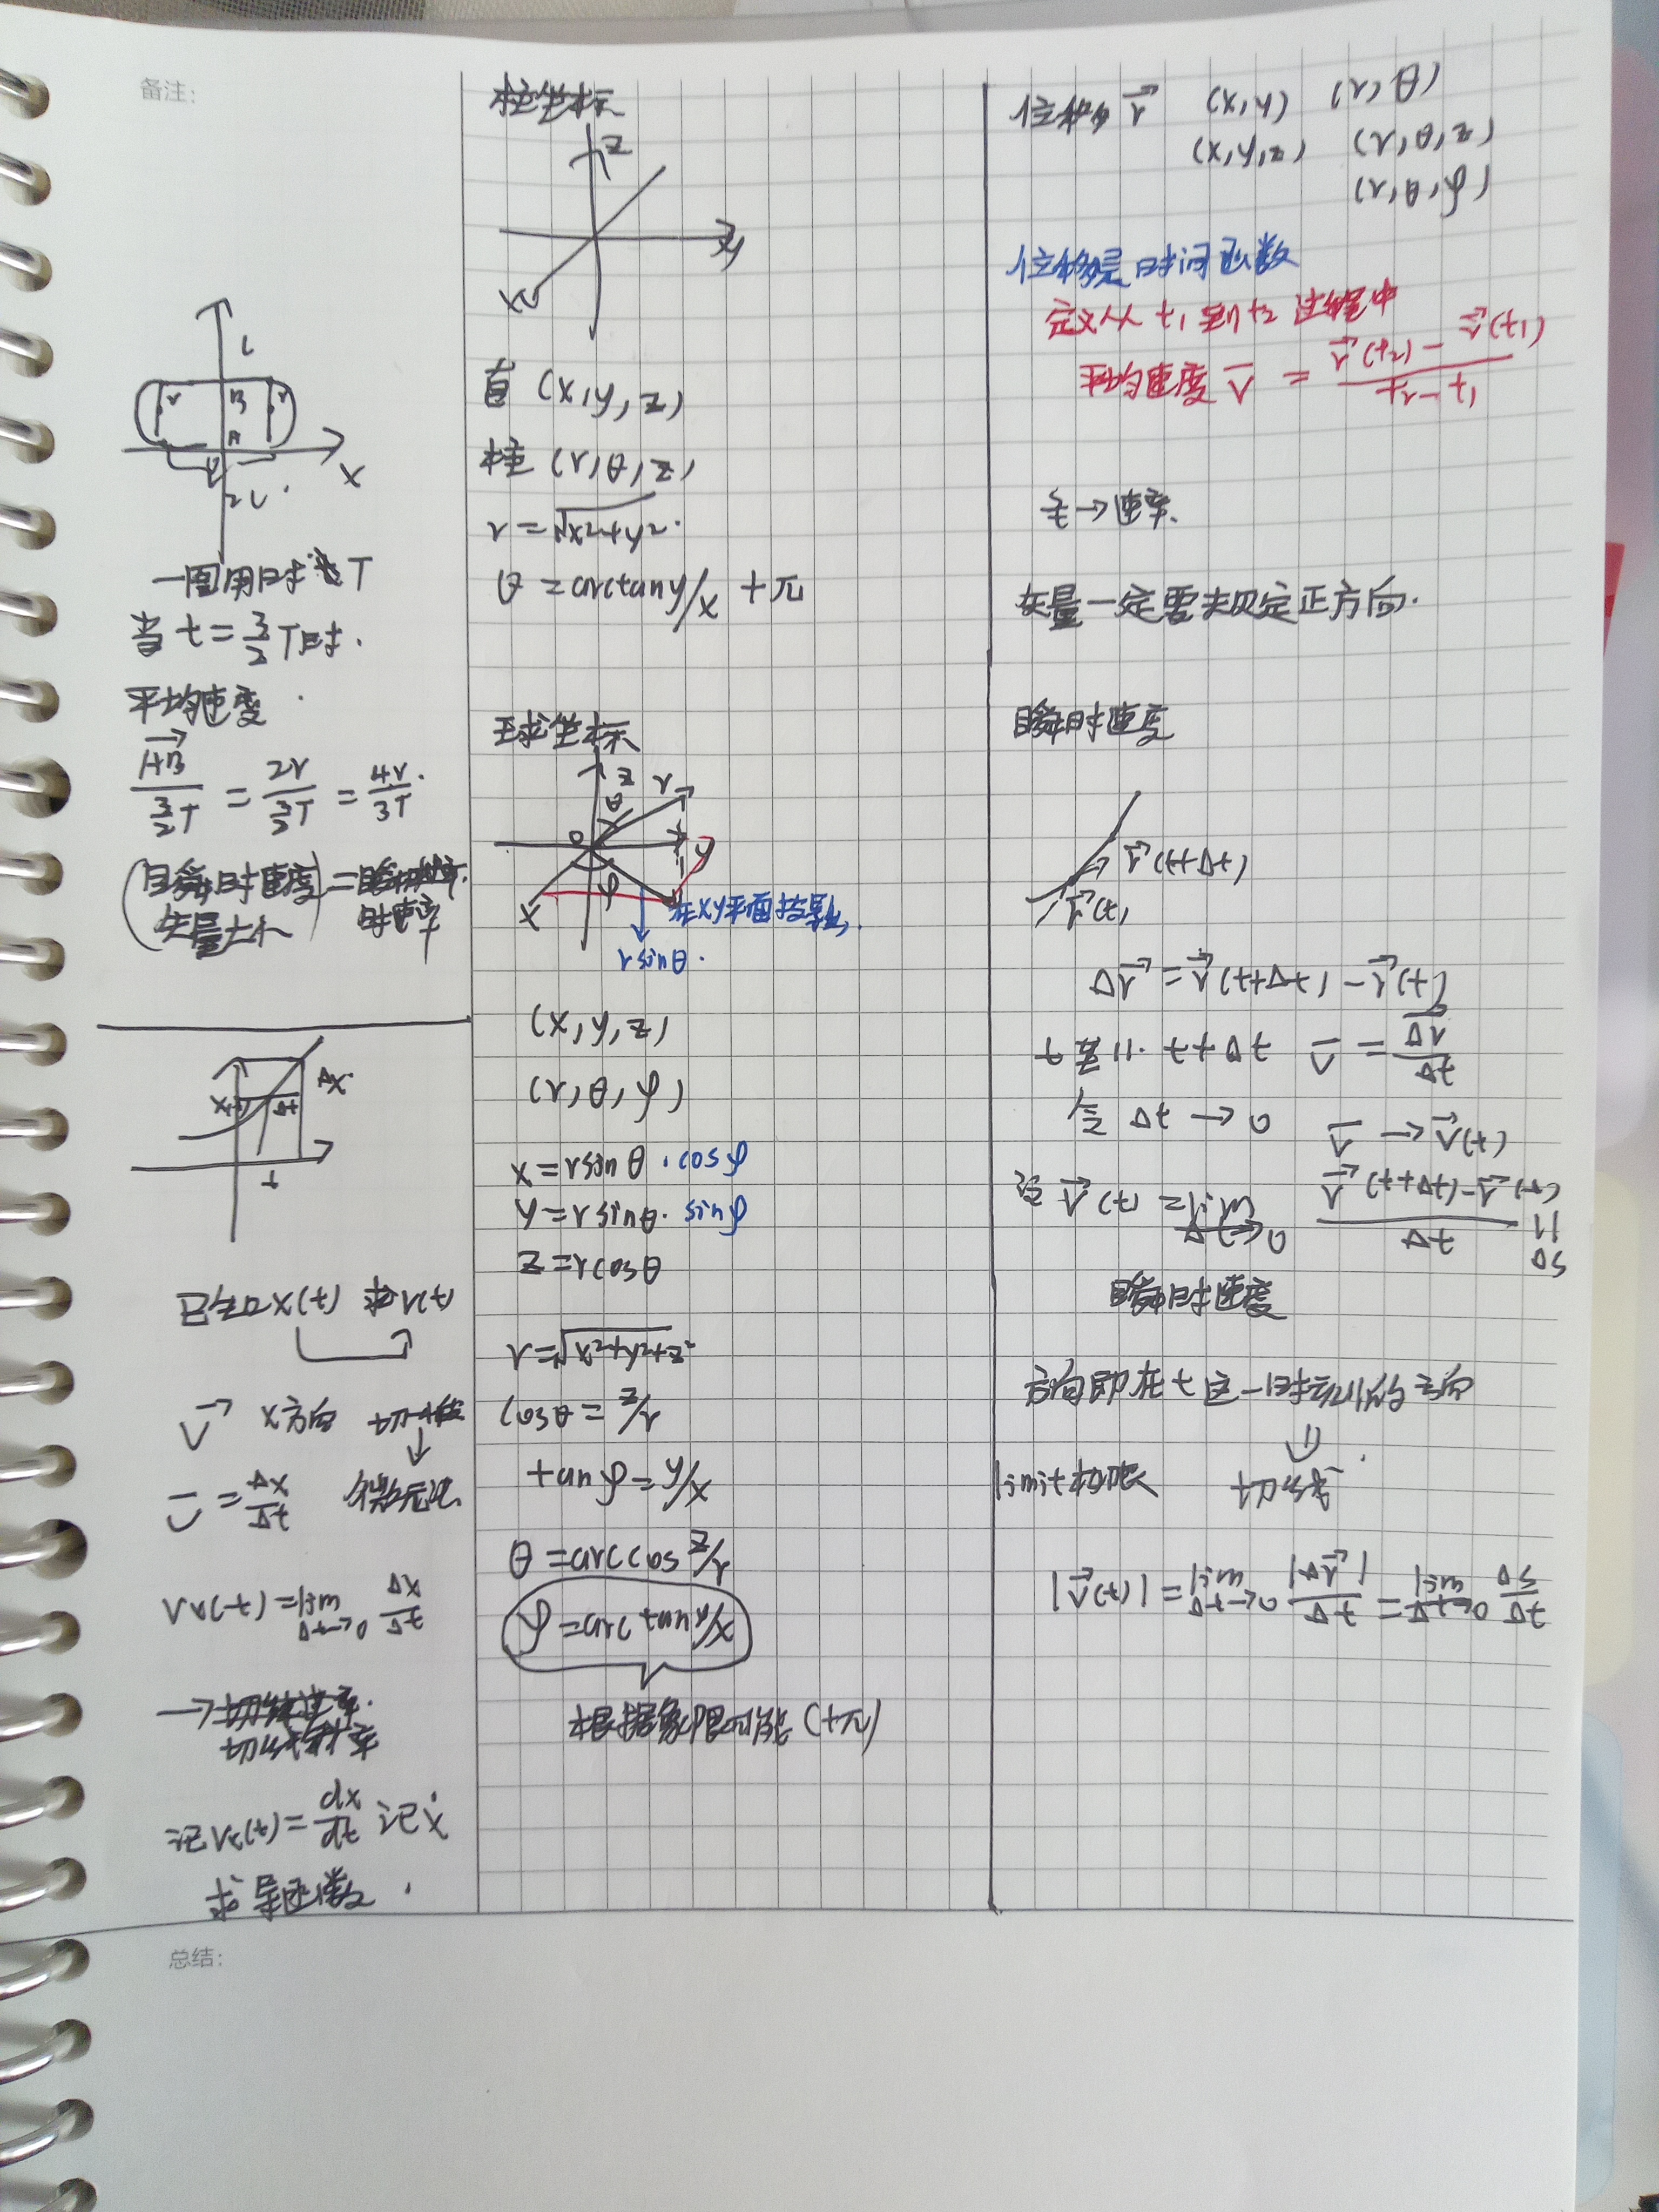 备注:
L
r
B
r
A
X
2L
一圈用时为T
当 t = 3/2 T时.
平均速度
AB→ / (3/2 T) = 2r / (3/2 T) = 4r / 3T
(瞬时速度 矢量大小) = 瞬时速率
Δx
x(t)
Δt
t
已知x(t) 求v(t)
v→ x方向 切线
v̄ = Δx/Δt 微元法
Vx(t) = lim Δt→0 Δx/Δt
→
切线斜率
记Vx(t) = dx/dt 记ẋ
求导函数.
柱坐标
z
y
x
直 (x,y,z)
柱 (r,θ,z)
r = √x²+y²
θ = arctan y/x +π
球坐标
z
r
θ
O
y
φ
x
在xy平面投影
r sinθ.
(x,y,z)
(r,θ,φ)
x = r sinθ · cosφ
y = r sinθ · sinφ
z = r cosθ
r = √x²+y²+z²
cosθ = z/r
tanφ = y/x
θ = arccos z/r
φ = arctan y/x
根据象限可能 (+π)
位移 r→ (x,y) (r,θ)
(x,y,z) (r,θ,z)
(r,θ,φ)
位移是时间函数
定义从 t₁ 到 t₂ 过程中
平均速度 v̄ = (r→(t₂) − r→(t₁)) / (t₂−t₁)
→速率.
矢量一定要规定正方向.
瞬时速度
r→(t+Δt)
r→(t)
Δr→ = r→(t+Δt) − r→(t)
t 到 t+Δt v̄ = Δr/Δt
令 Δt → 0 v̄ → v→(t)
v→(t) = lim Δt→0 (r→(t+Δt) − r→(t)) / Δt
Δs
瞬时速度
方向即在 t 这一时刻的方向
limit 极限 切线
|v→(t)| = lim Δt→0 |Δr→|/Δt = lim Δt→0 Δs/Δt
总结: